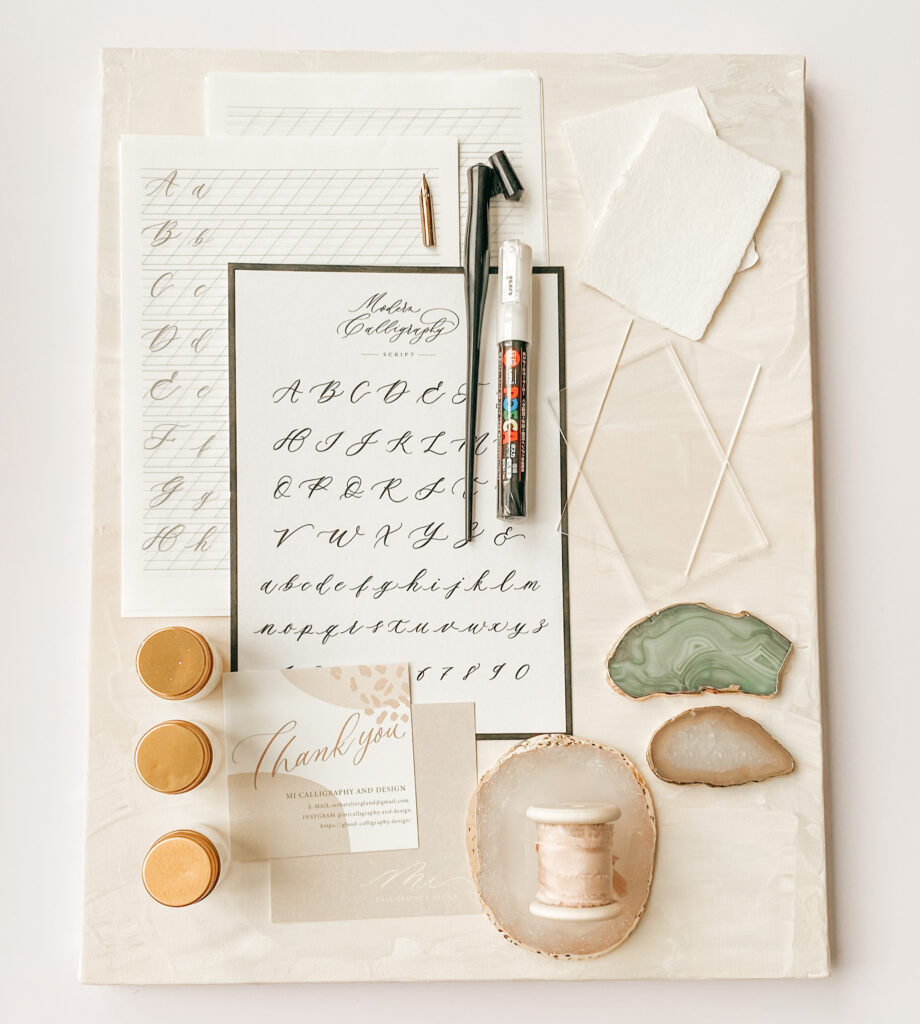 A a
B b
C c
D d
E e
F f
G g
H h
Modern
Calligraphy
SCRIPT
A B C D E F
H I J K L M
O P Q R S T
V W X Y Z &
a b c d e f g h i j k l m
n o p q r s t u v w x y z
6 7 8 9 0
uni
POSCA
Thank you
MI CALLIGRAPHY AND DESIGN
E-MAIL:webateliergland@gmail.com
INSTGRAM @micalligraphy.and.design
https://gland-calligraphy.design/
Mi
CALLIGRAPHY & DESIGN